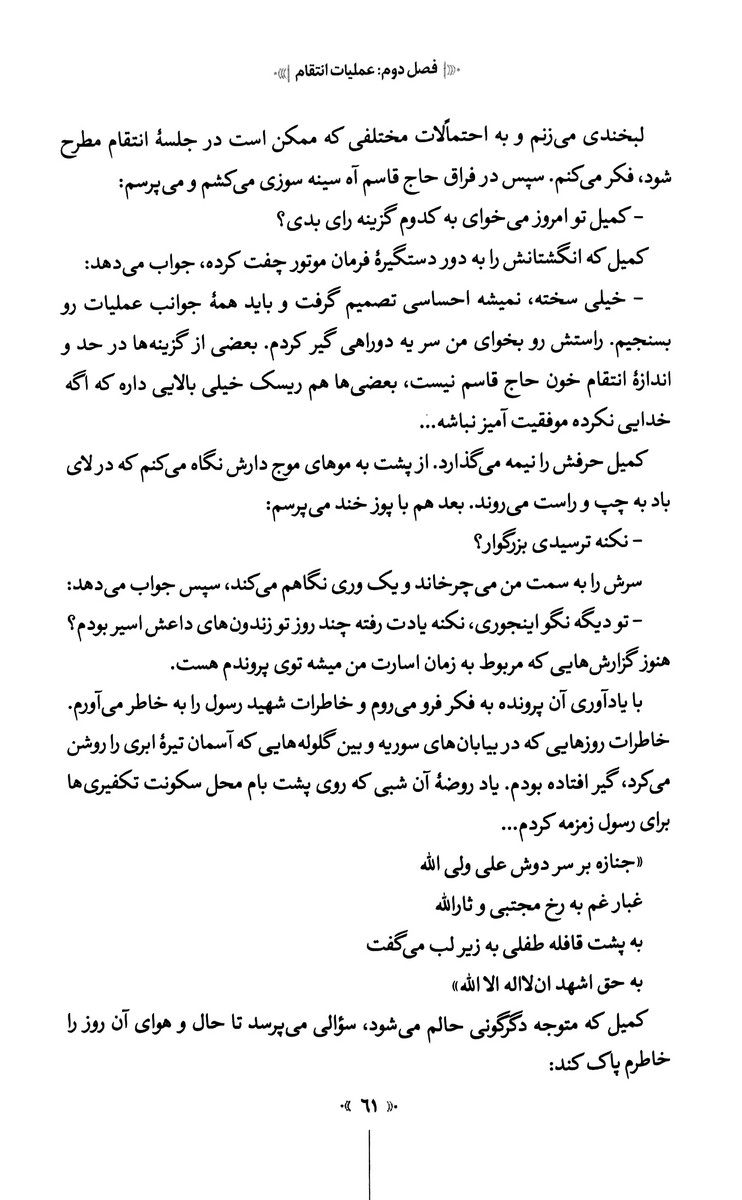 فصل دوم: عملیات انتقام
لبخندی می‌زنم و به احتمالًات مختلفی که ممکن است در جلسهٔ انتقام مطرح
شود، فکر می‌کنم. سپس در فراق حاج قاسم آه سینه سوزی می‌کشم و می‌پرسم:
– کمیل تو امروز می‌خوای به کدوم گزینه رای بدی؟
کمیل که انگشتانش را به دور دستگیرهٔ فرمان موتور چفت کرده، جواب می‌دهد:
– خیلی سخته، نمیشه احساسی تصمیم گرفت و باید همهٔ جوانب عملیات رو
بسنجیم. راستش رو بخوای من سر یه دوراهی گیر کردم. بعضی از گزینه‌ها در حد و
اندازهٔ انتقام خون حاج قاسم نیست، بعضی‌ها هم ریسک خیلی بالایی داره که اگه
خدایی نکرده موفقیت آمیز نباشه...
کمیل حرفش را نیمه می‌گذارد. از پشت به موهای موج دارش نگاه می‌کنم که در لای
باد به چپ و راست می‌روند. بعد هم با پوز خند می‌پرسم:
– نکنه ترسیدی بزرگوار؟
سرش را به سمت من می‌چرخاند و یک وری نگاهم می‌کند، سپس جواب می‌دهد:
– تو دیگه نگو اینجوری، نکنه یادت رفته چند روز تو زندون‌های داعش اسیر بودم؟
هنوز گزارش‌هایی که مربوط به زمان اسارت من میشه توی پروندم هست.
با یادآوری آن پرونده به فکر فرو می‌روم و خاطرات شهید رسول را به خاطر می‌آورم.
خاطرات روزهایی که در بیابان‌های سوریه و بین گلوله‌هایی که آسمان تیرهٔ ابری را روشن
می‌کرد، گیر افتاده بودم. یاد روضهٔ آن شبی که روی پشت بام محل سکونت تکفیری‌ها
برای رسول زمزمه کردم...
«جنازه بر سر دوش علی ولی الله
غبار غم به رخ مجتبی و ثارالله
به پشت قافله طفلی به زیر لب می‌گفت
به حق اشهد ان‌لااله الا الله»
کمیل که متوجه دگرگونی حالم می‌شود، سؤالی می‌پرسد تا حال و هوای آن روز را
خاطرم پاک کند:
۶۱